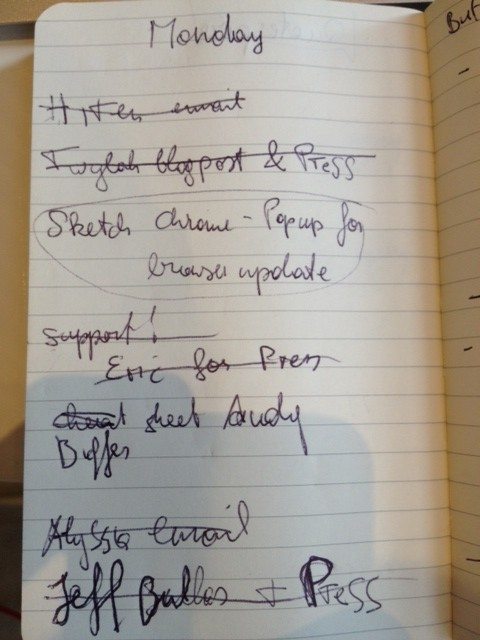 Monday
Hiten email
Twylah blogpost & Press
Sketch chrome - Popup for
browser update
support!
Eric for Press
cheat sheet Andy
Buffer
Alyssia Email
Jeff Bullas + Press
Buf